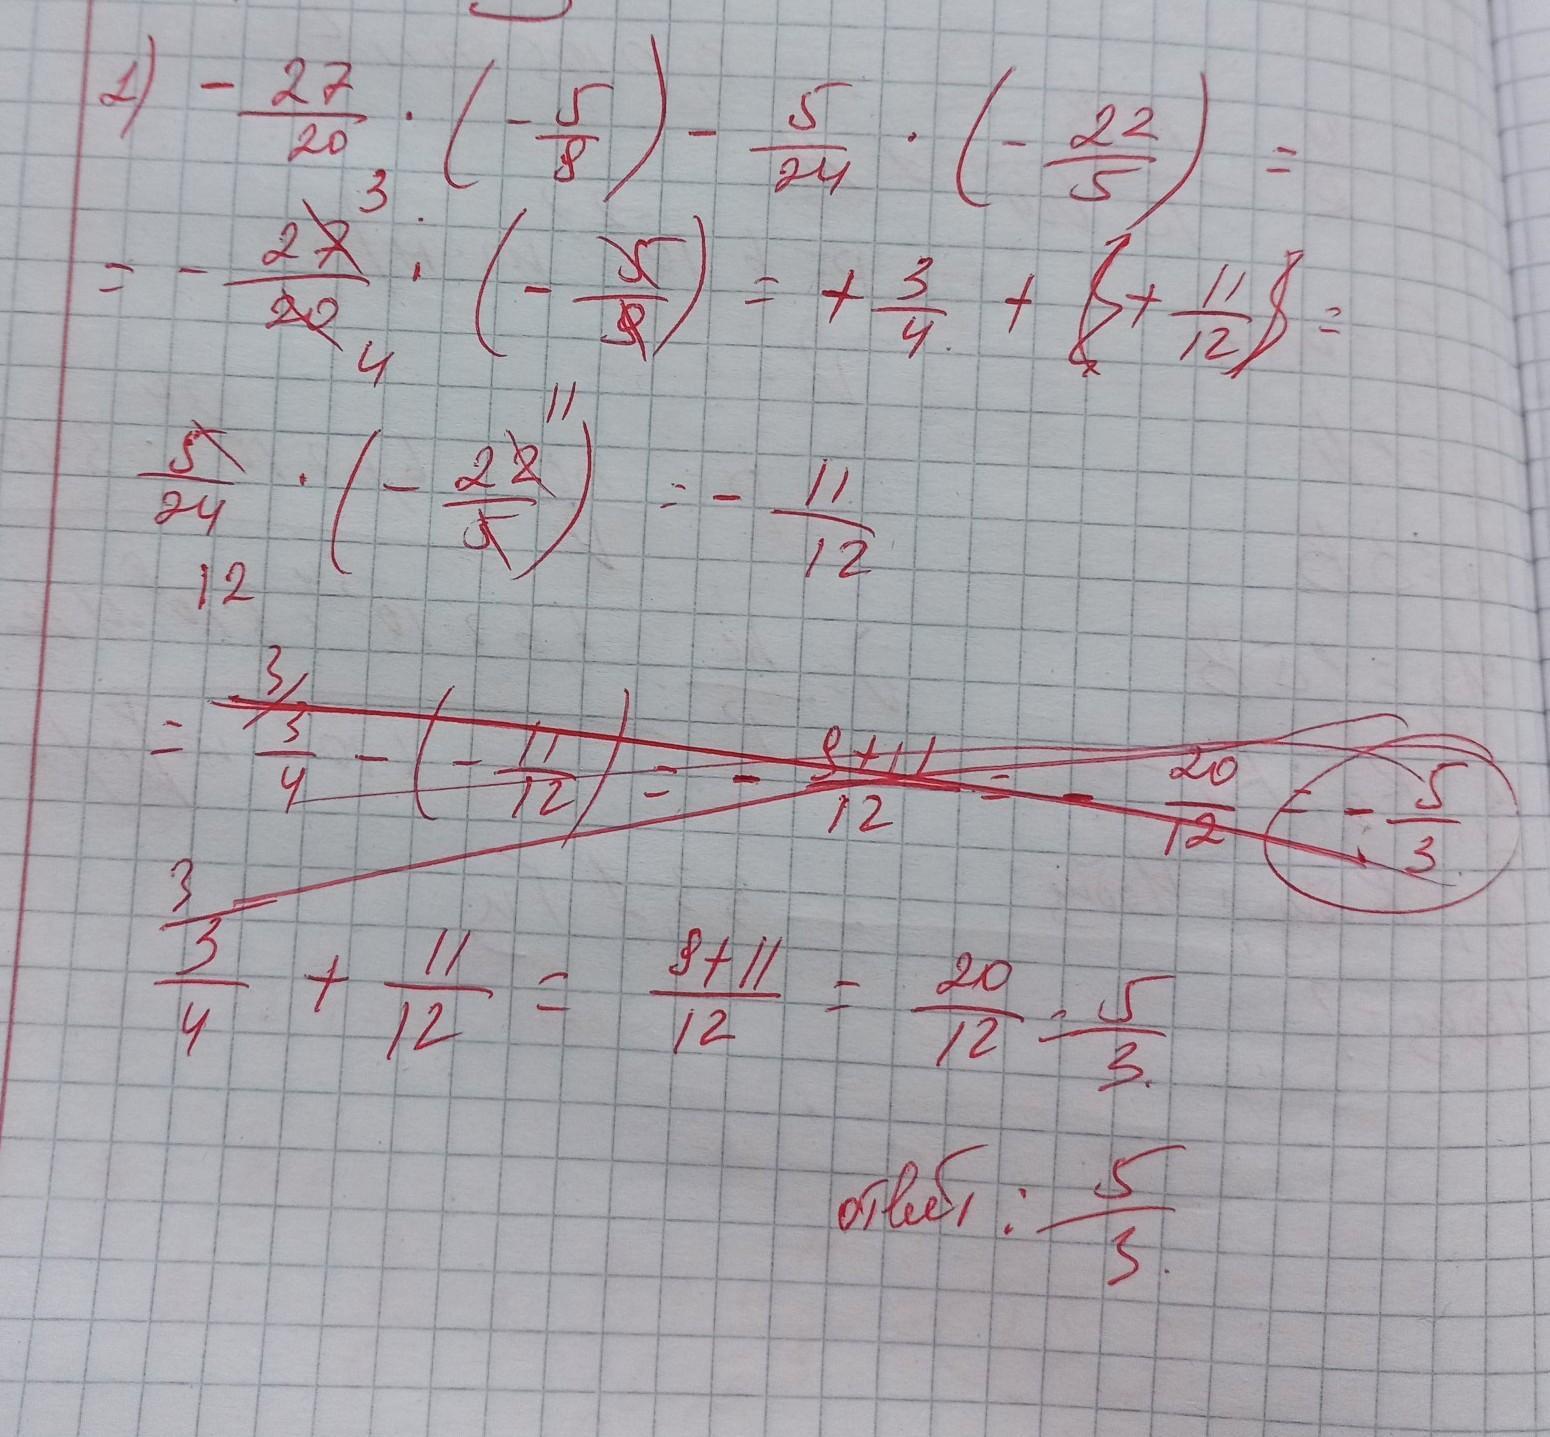 1) - 27/20 · (- 5/9) - 5/24 · (- 22/5) =
= - 27/20 · (- 5/9) = + 3/4 + (+ 11/12) =
3 4
11
5/24 · (- 22/5) = - 11/12
12
3
= 3/4 - (- 11/12) = - 9+11/12 = - 20/12 = - 5/3
3
3/4 + 11/12 = 9+11/12 = 20/12 = 5/3
ответ: 5/3